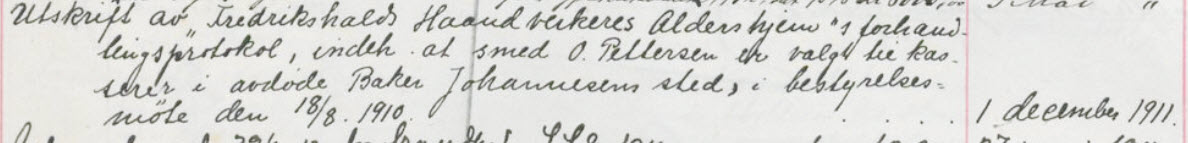 Utskrift av Fredrikshalds Haandverkeres Aldershjem's forhand-
lingsprotokol, indeh. at smed O. Pettersen er valgt til kas-
serer i avdøde Baker Johannesens sted, i bestyrelses-
møte den 18/8. 1910. . . . . 1 december 1911.